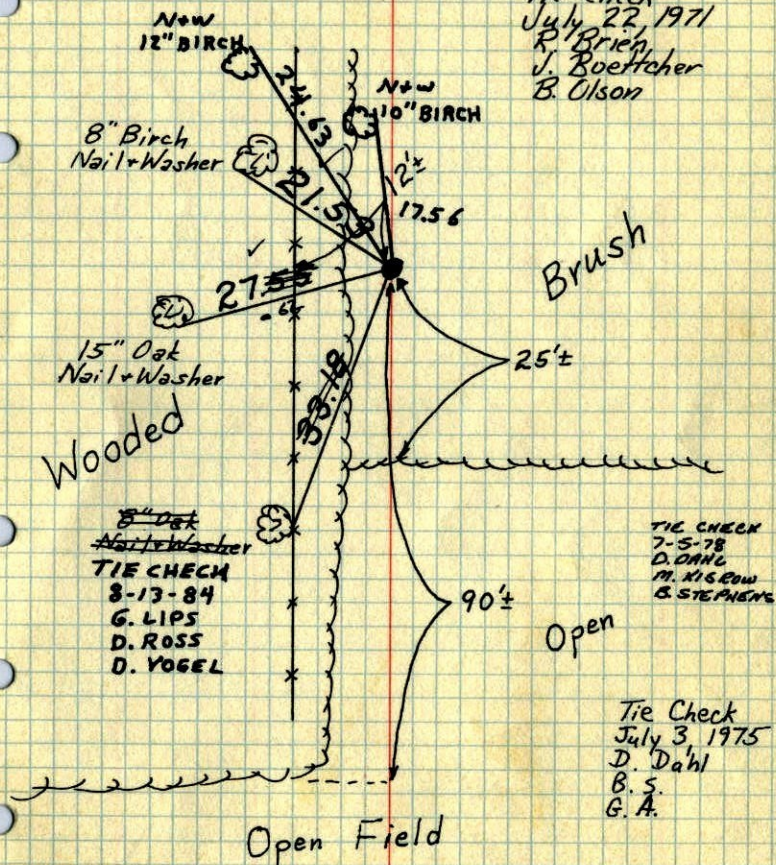 July 22, 1971
R. Brien
J. Boettcher
B. Olson
N+W
12" BIRCH
24.63
N+W
10" BIRCH
8" Birch
Nail+Washer
12'±
17.56
Brush
27
15" Oak
Nail+Washer
25'±
33.18
Wooded
8" Oak
Nail+Washer
TIE CHECK
8-13-84
G. LIPS
D. ROSS
D. VOGEL
TIE CHECK
7-5-78
D. DAHL
B. STEPHENS
90'±
Open
Tie Check
July 3, 1975
D. Dahl
B. S.
G. A.
Open Field